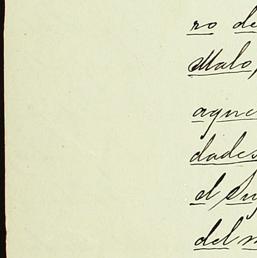 ro de
Malo,
aque
dades
el Su
del m